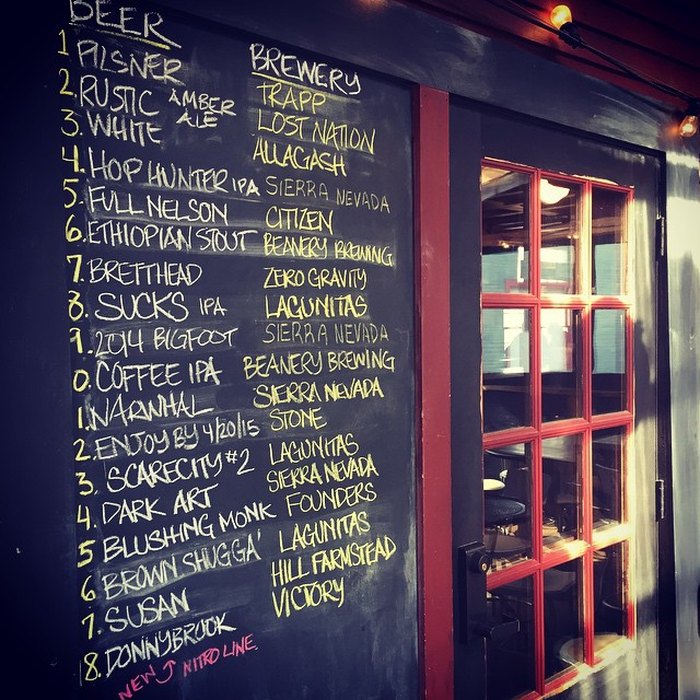 BEER BREWERY
1. PILSNER TRAPP
2. RUSTIC AMBER ALE LOST NATION
3. WHITE ALLAGASH
4. HOP HUNTER IPA SIERRA NEVADA
5. FULL NELSON CITIZEN
6. ETHIOPIAN STOUT BEANERY BREWING
7. BRETTHEAD ZERO GRAVITY
8. SUCKS IPA LAGUNITAS
9. 2014 BIGFOOT SIERRA NEVADA
0. COFFEE IPA BEANERY BREWING
1. NARWHAL SIERRA NEVADA
2. ENJOY BY 4/20/15 STONE
3. SCARECITY #2 LAGUNITAS
4. DARK ART SIERRA NEVADA
5 BLUSHING MONK FOUNDERS
6 BROWN SHUGGA' LAGUNITAS
7. SUSAN HILL FARMSTEAD
8. DONNYBROOK VICTORY
NEW NITRO LINE.